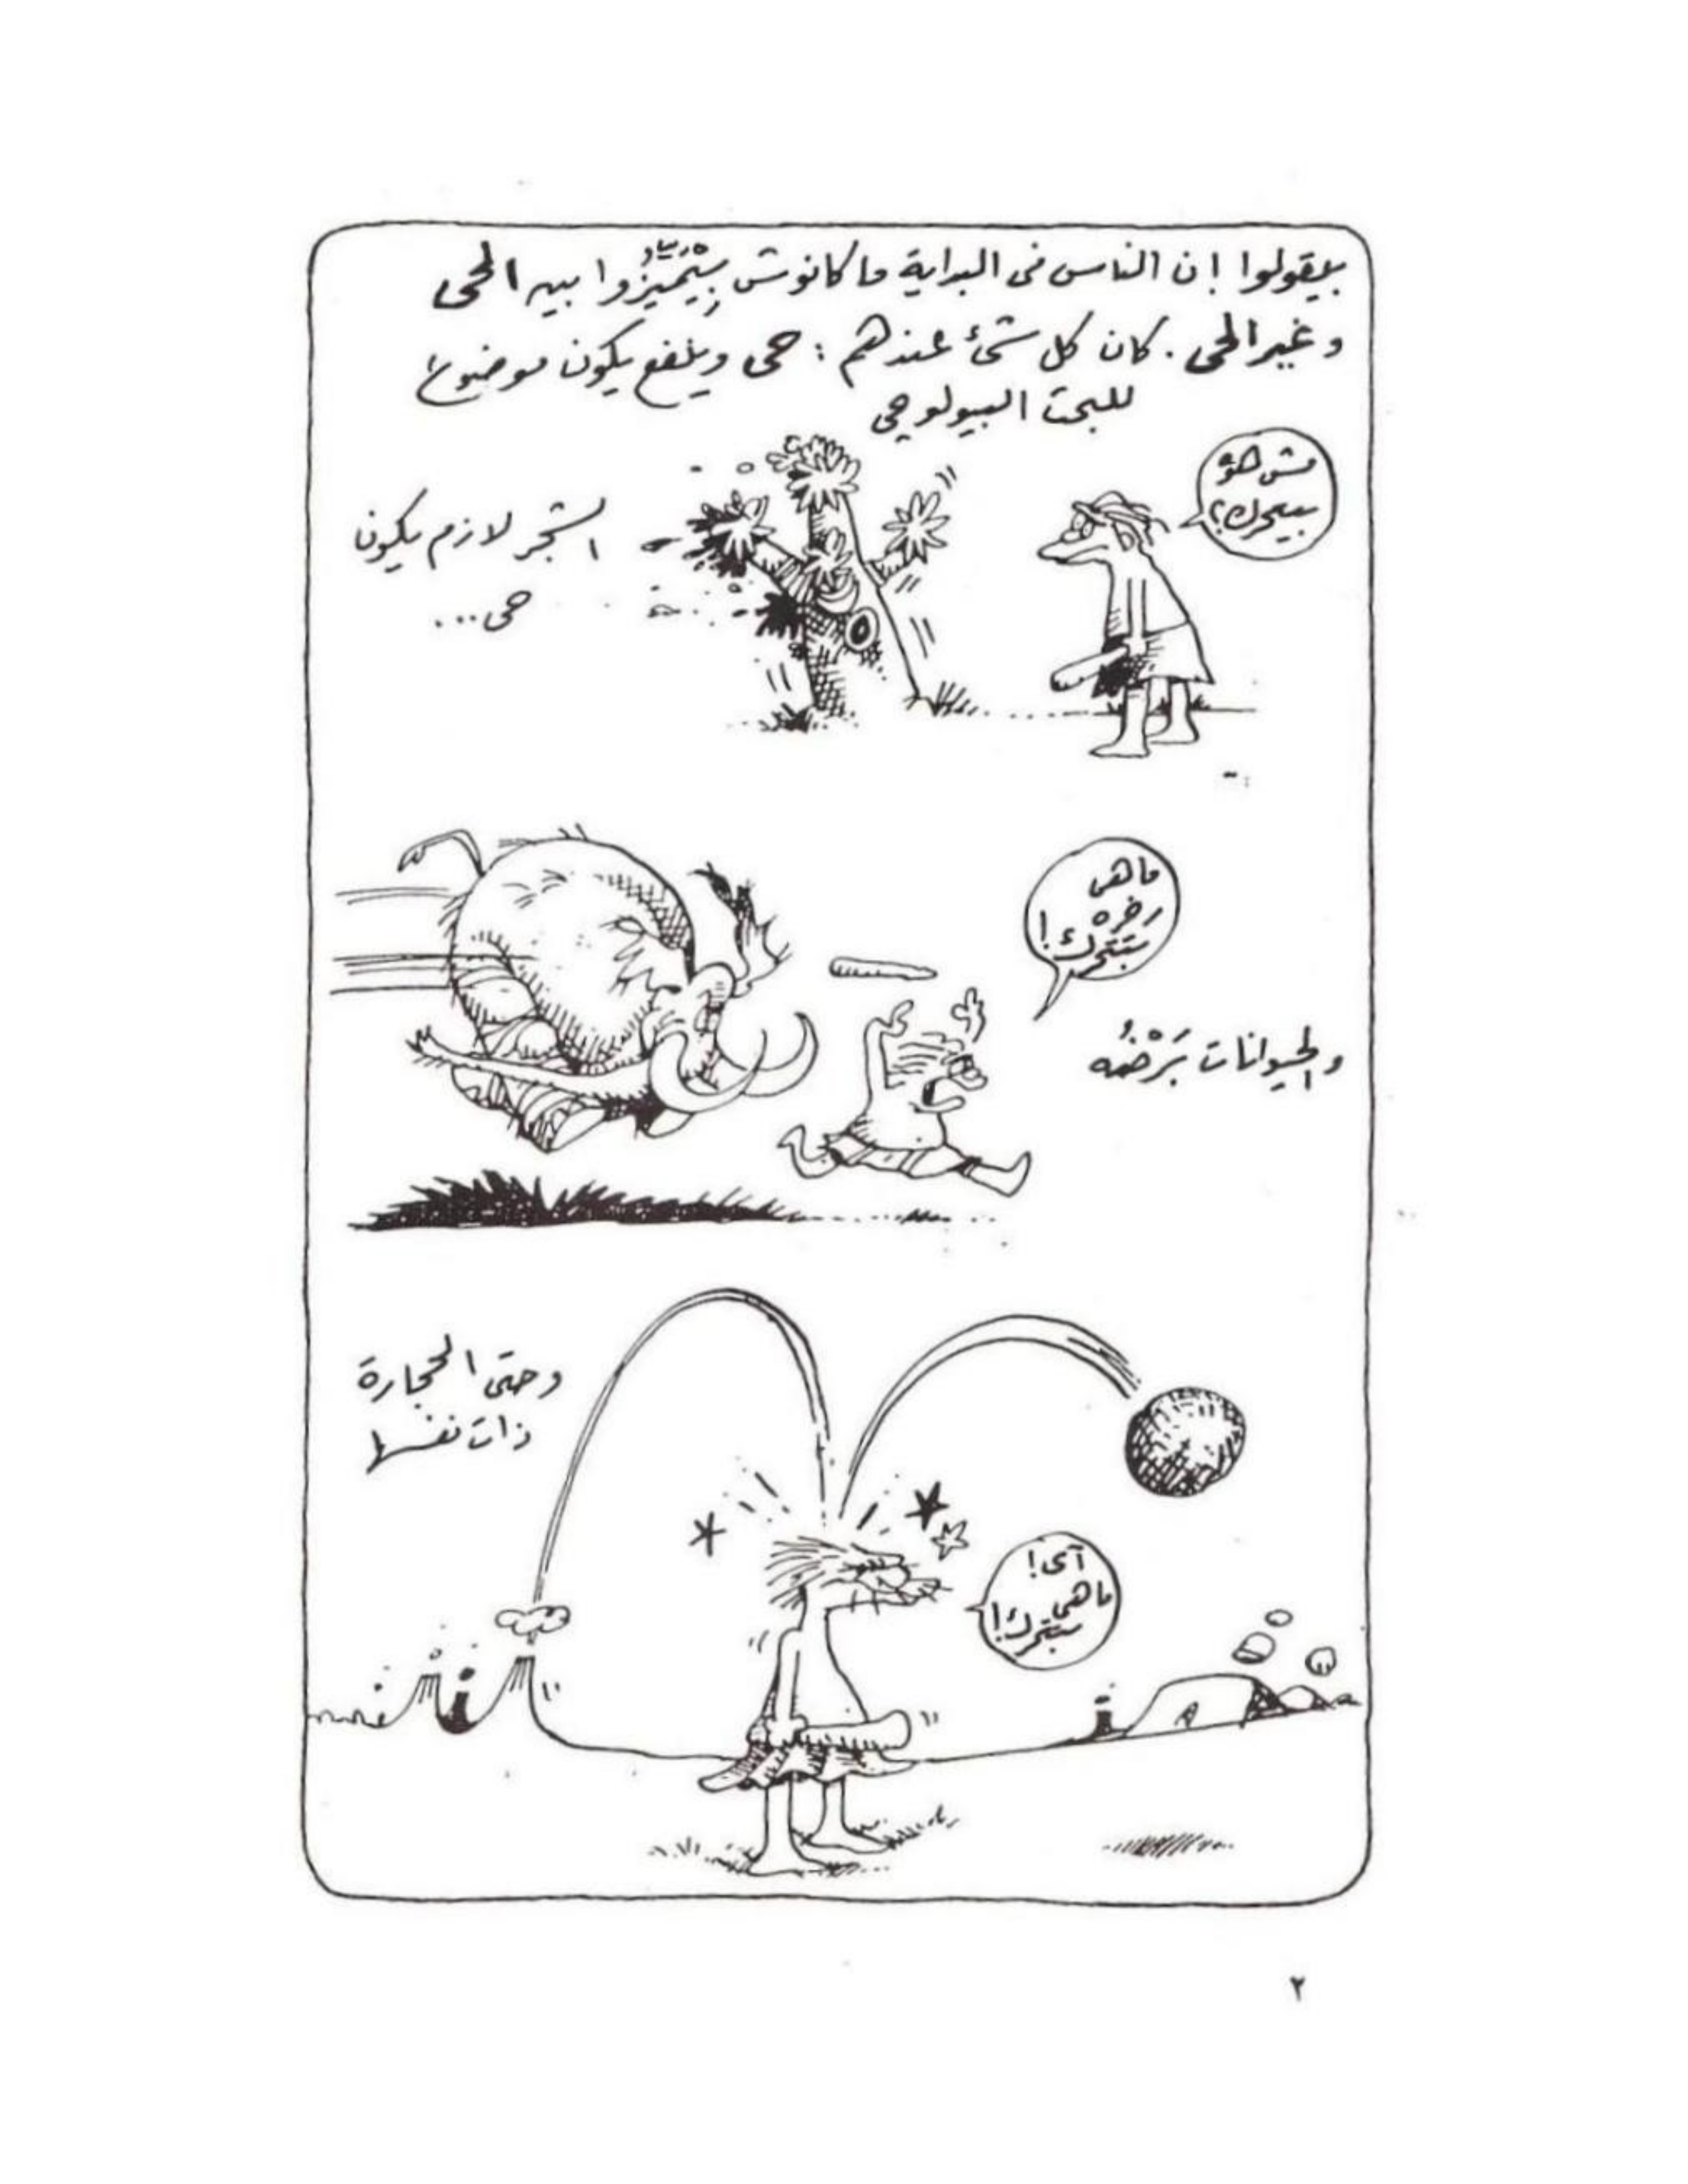 بيقولوا إن الناس فى البداية ما كانوش بِيْمَيِّزُوا بين الحى
وغير الحى . كان كل شئ عندهم : حى وينفع يكون موضوع
للبحث البيولوجى
مش هوّ
بيتحرك؟
الشجر لازم يكون
حى ...
ما هى
رخره
بتتحرك!
والحيوانات بَرْضُه
وحتى الحجارة
ذات نفسها
آى!
ما هى
بتتحرك!
٢